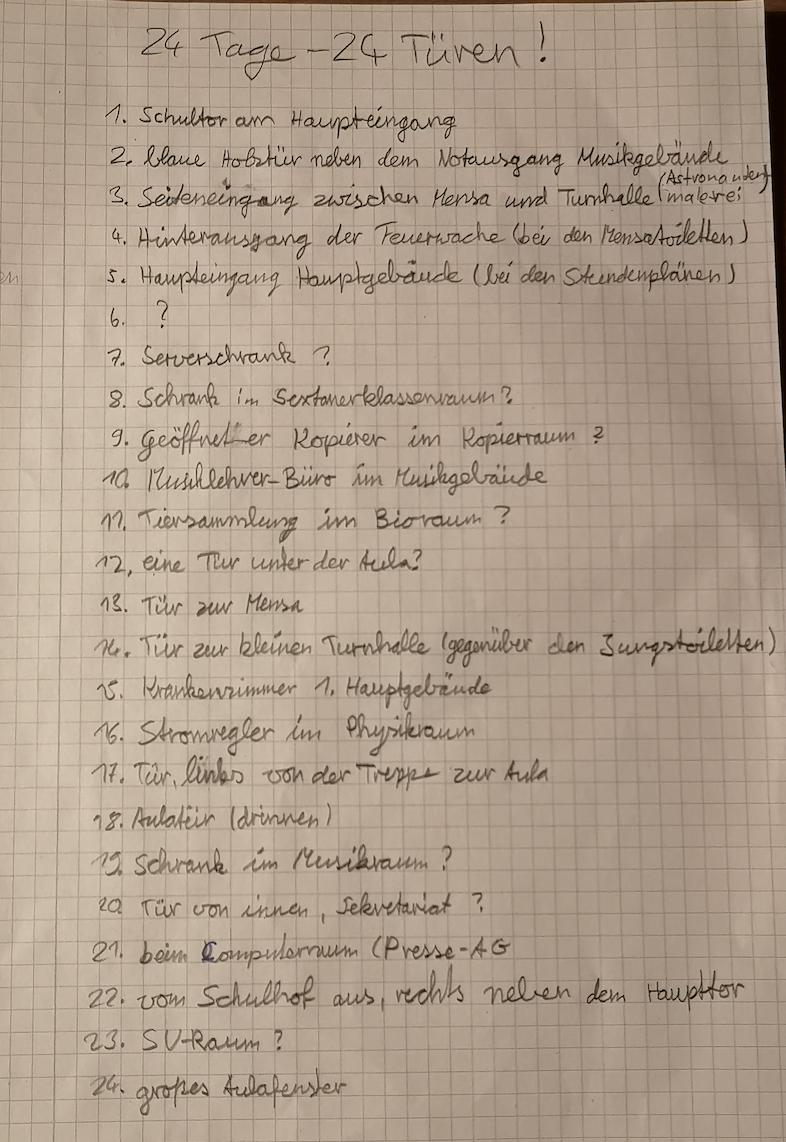 24 Tage - 24 Türen!
1. Schultor am Haupteingang
2. blaue Holztür neben dem Notausgang Musikgebäude
3. Seiteneingang zwischen Mensa und Turnhalle (Astronautenmalerei)
4. Hinterausgang der Feuerwache (bei den Mensatoiletten)
5. Haupteingang Hauptgebäude (bei den Stundenplänen)
6. ?
7. Serverschrank ?
8. Schrank im Sextanerklassenraum?
9. Geöffneter Kopierer im Kopierraum ?
10. Musiklehrer-Büro im Musikgebäude
11. Tiersammlung im Bioraum ?
12, eine Tür unter der Aula?
13. Tür zur Mensa
14. Tür zur kleinen Turnhalle (gegenüber den Jungstoiletten)
15. Krankenzimmer 1. Hauptgebäude
16. Stromregler im Physikraum
17. Tür, links von der Treppe zur Aula
18. Aulatür (drinnen)
19. Schrank im Musikraum ?
20. Tür von innen, Sekretariat ?
21. beim Computerraum (Presse-AG
22. vom Schulhof aus, rechts neben dem Haupttor
23. SV-Raum ?
24. großes Aulafenster